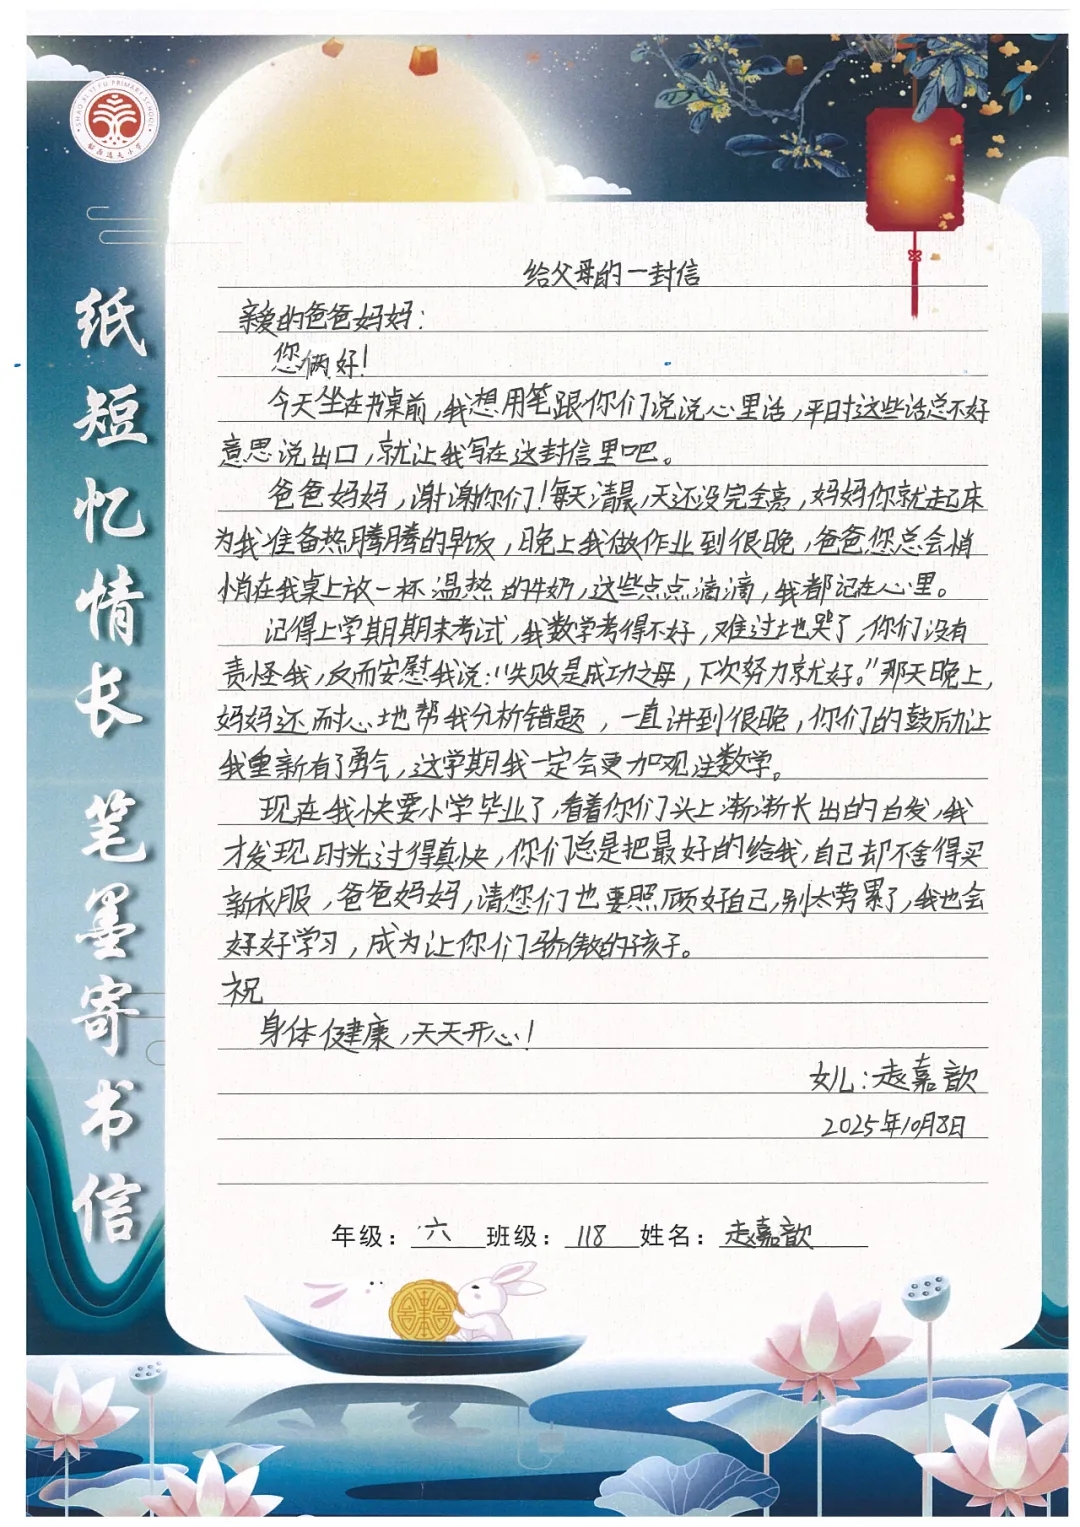 SHAO XI YI FU PRIMARY SCHOOL
邵西逸夫小学
纸短忆情长 笔墨寄书信
给父母的一封信
亲爱的爸爸妈妈：
您俩好！
今天坐在书桌前，我想用笔跟你们说说心里话，平时这些话总不好
意思说出口，就让我写在这封信里吧。
爸爸妈妈，谢谢你们！每天清晨，天还没完全亮，妈妈你就起床
为我准备热腾腾的早饭，晚上我做作业到很晚，爸爸您总会悄
悄在我桌上放一杯温热的牛奶，这些点点滴滴，我都记在心里。
记得上学期期末考试，我数学考得不好，难过地哭了，你们没有
责怪我，反而安慰我说：“失败是成功之母，下次努力就好。”那天晚上，
妈妈还耐心地帮我分析错题，一直讲到很晚，你们的鼓励让
我重新有了勇气，这学期我一定会更加观注数学。
现在我快要小学毕业了，看着你们头上渐渐长出的白发，我
才发现时光过得真快，你们总是把最好的给我，自己却不舍得买
新衣服，爸爸妈妈，请您们也要照顾好自己，别太劳累了，我也会
好好学习，成为让你们骄傲的孩子。
祝
身体健康，天天开心！
女儿：赵嘉歆
2025年10月8日
年级：六 班级：118 姓名：赵嘉歆